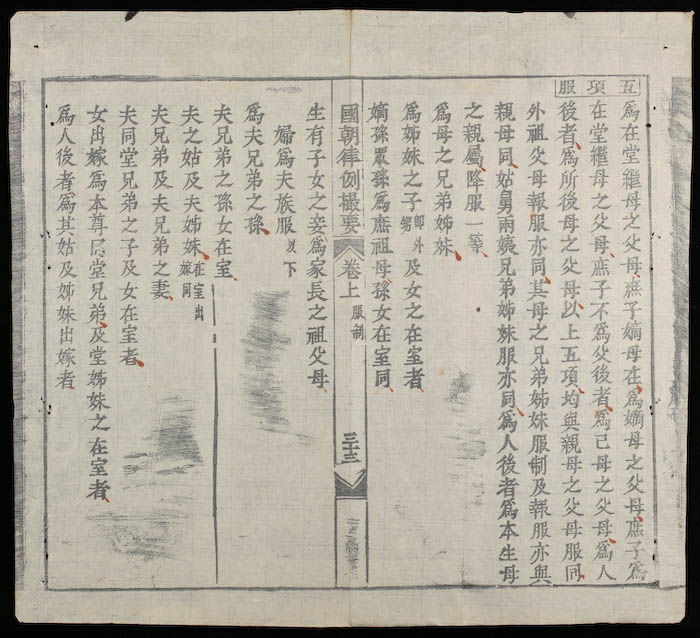 五項服
爲在堂繼母之父母、庶子嫡母在、爲嫡母之父母、庶子爲
在堂繼母之父母、庶子不爲父後者、爲己母之父母、爲人
後者、爲所後母之父母以上五項、均與親母之父母服同、
外祖父母報服亦同、其母之兄弟姊妹服制及報服亦與
親母同、姑舅兩姨兄弟姊妹服亦同、爲人後者爲本生母
之親屬、降服一等、
爲母之兄弟姊妹、
爲姊妹之子即外甥及女之在室者
嫡孫眾孫爲庶祖母、孫女在室同、
國朝律例撮要 卷上 服制 三十三
生有子女之妾爲家長之祖父母、
婦爲夫族服以下
爲夫兄弟之孫、
夫兄弟之孫女在室、
夫之姑及夫姊妹、在室出嫁同
夫兄弟及夫兄弟之妻、
夫同堂兄弟之子及女在室者、
女出嫁爲本堂兄弟、及堂姊妹之在室者、
爲人後者、爲其姑及姊妹出嫁者、